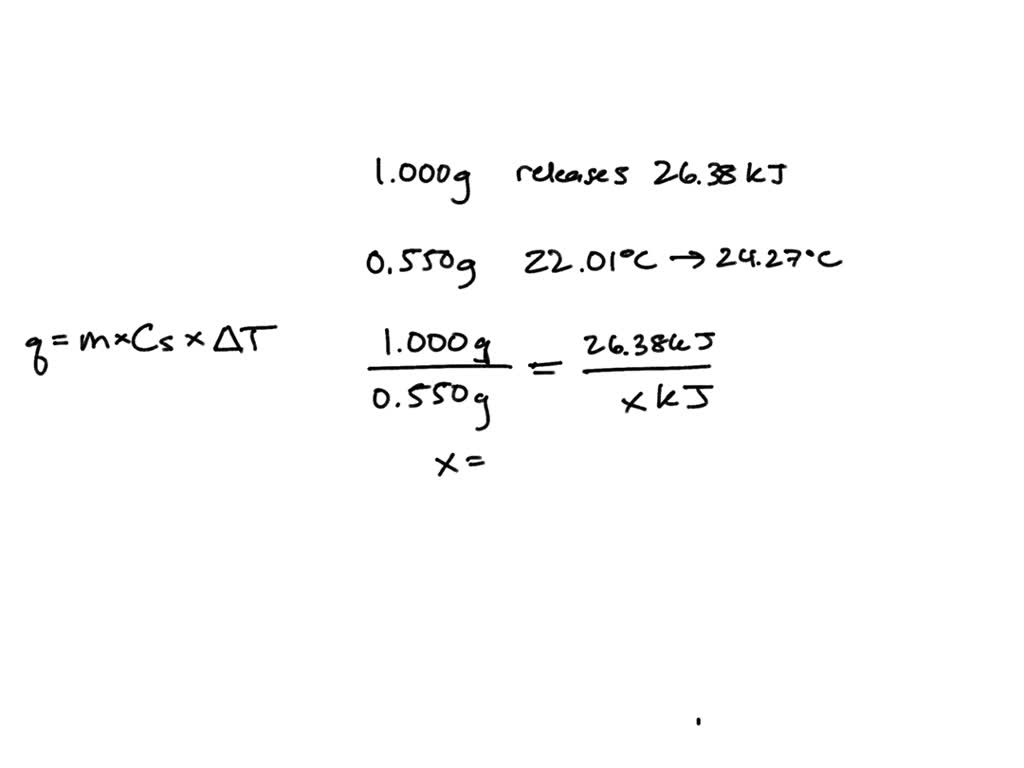 1.000g releases 26.38 kJ
0.550g 22.01°C → 24.27°C
q = m × Cs × ΔT
1.000 g / 0.550g = 26.38 kJ / x kJ
x =